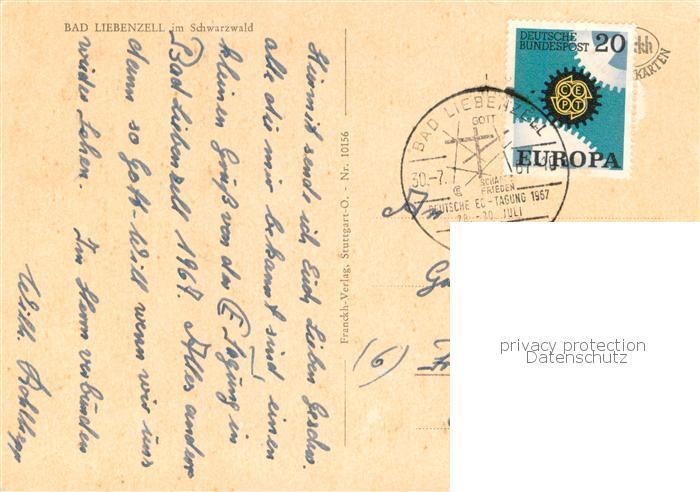 BAD LIEBENZELL im Schwarzwald
Hiermit sende ich Euch, Lieben Geschw.
alle die mir bekannt sind einen
kleinen Gruß von der EC Tagung in
Bad Liebenzell 1967. Alles andere
dann so Gott-Will wenn wir uns
wieder sehen. Im Herrn verbunden
Wilh.
Franckh-Verlag, Stuttgart-O. Nr. 10156
DEUTSCHE
BUNDESPOST 20
CEPT
EUROPA
KARTEN
BAD LIEBENZELL
GOTT
30.-7.
67
SCHAFFT
FRIEDEN
DEUTSCHE EC-TAGUNG 1967
28.-30. JULI
An
(6)
privacy protection
Datenschutz